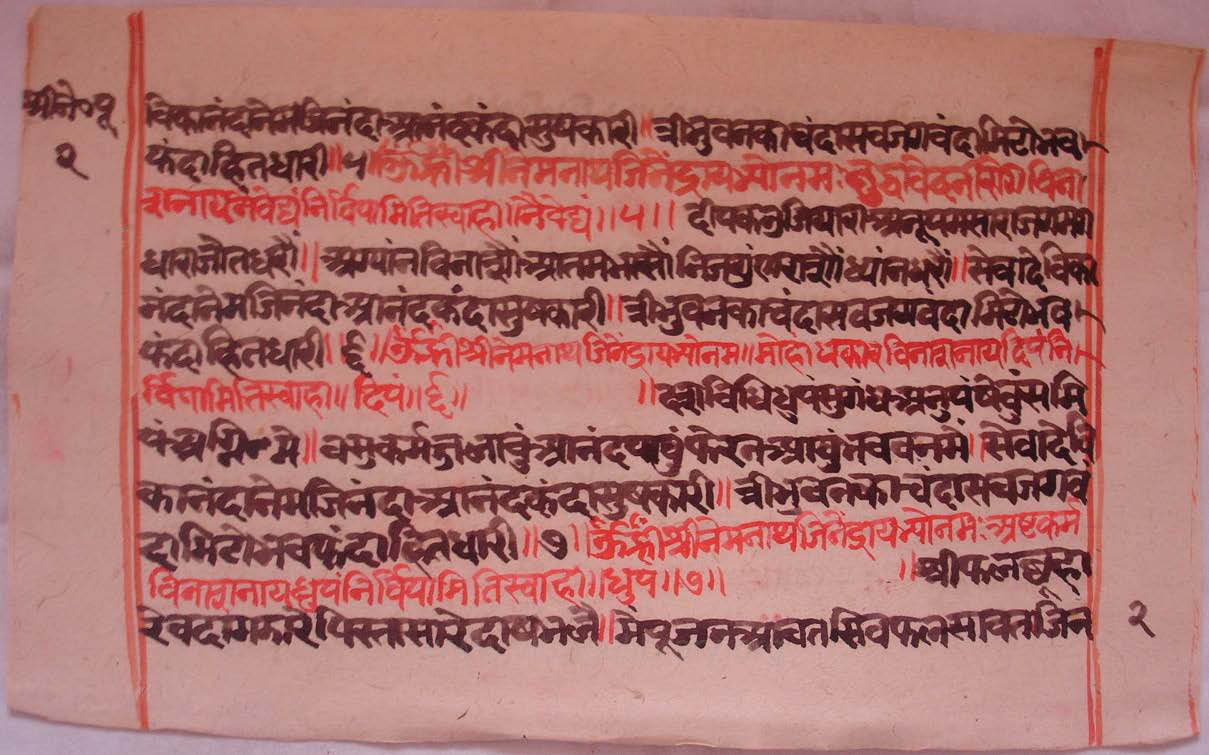 श्रीने०पू
२
विकानंदानेमजिनंदाआनंदकंदासुषकारी॥त्रीभुवनकाचंदासवजगवंदामिटोभव
फंदाहितधारी॥५॥ॐह्रीँश्रीनेमनाथजिनेंद्रायभ्योनमः
शनायनैवेद्यंनिर्विपामितिस्वाहा॥नैवेद्यं॥५॥ दीपकउजियारीअनूपम
धाराजोतधरौं॥अग्यांनविनाशौंआतमभासौं ध्यांनधरौं॥सेवादेविका
नंदानेमजिनंदाआनंदकंदासुषकारी॥त्रीभुवनकाचंदासवजगवंदामिटोभव
फंदाहितधारी॥६॥ॐह्रीँश्रीनेमनाथजिनेंद्रायभ्योनमः॥मोहांधकारविनाशनायदिपंनि
र्विपामितिस्वाहा॥दिपं॥६॥ ॥दशविधिधुपसुगंधअनुपंषेवुंसमि
पं ॥वसुकर्म आनंदपावुंफेरनआवुंभववनमें॥सेवादेवि
कानंदानेमजिनंदाआनंदकंदासुषकारी॥त्रीभुवनकाचंदासवजगवं
दामिटोभवफंदाहितधारी॥७॥ॐह्रीँश्रीनेमनाथजिनेंद्रायभ्योनमःअष्टकर्म
विनाशनायधुपंनिर्विपामितिस्वाहा॥धुपं॥७॥ ॥श्रीफलछुहा
रेवदाम पिस्तासारे ॥ पूजनआवतसिवफल जिन
२